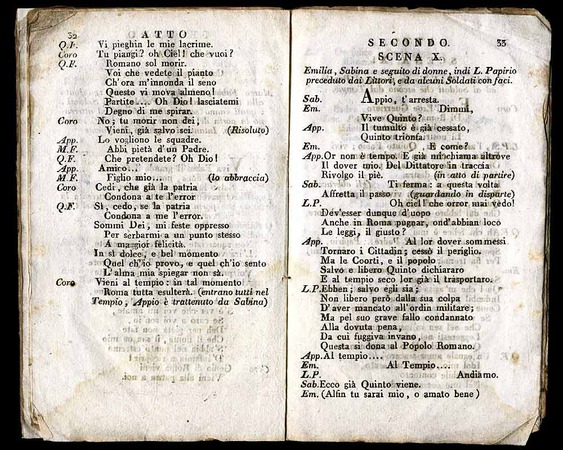 32 ATTO
Q.F. Vi pieghin le mie lacrime.
Coro Tu piangi? oh Ciel! che vuoi?
Q.F. Romano sol morir.
Voi che vedete il pianto
Ch'ora m'innonda il seno
Questo vi mova almeno!
Partite.... Oh Dio! lasciatemi
Degno di me spirar.
Coro No; tu morir non dei,
Vieni, già salvo sei. (Risoluto)
App. Lo vogliono le squadre.
M.F. Abbi pietà d'un Padre.
Q.F. Che pretendete? Oh Dio!
App. Amico...
M.F. Figlio mio.... (lo abbraccia)
Coro Cedi, che già la patria
Condona a te l'error
Q.F. Sì, cedo, se la patria
Condona a me l'error.
Sommi Dei, mi feste oppresso
Per serbarmi a un punto stesso
A maggior felicità.
In sì dolce, e bel momento
Quel ch'io provo, e quel ch'io sento
L'alma mia spiegar non sà.
Coro Vieni al tempio: in tal momento
Roma tutta esulterà. (entrano tutti nel
Tempio, Appio è trattenuto da Sabina)
SECONDO. 33
SCENA X.
Emilia, Sabina e seguito di donne, indi L. Papirio
preceduto dai Littori, e da alcuni Soldati con faci.
Sab. Appio, t'arresta.
Em. Dimmi,
Vive Quinto?
App. Il tumulto è già cessato,
Quinto trionfa.
Em. E come?
App. Or non è tempo. E già mi chiama altrove
Il dover mio. Del Dittatore in traccia
Rivolgo il piè. (in atto di partire)
Sab. Ti ferma: a questa volta
Affretta il passo (guardando in disparte)
L.P. Oh ciel! che orror mai vedo!
Dev'esser dunque d'uopo
Anche in Roma pugnar, ond'abbian loco
Le leggi, il giusto?
App. Al lor dover sommessi
Tornaro i Cittadin; cessò il periglio.
Ma le Coorti, e il popolo
Salvo e libero Quinto dichiararo
E al tempio seco lor già il trasportaro.
L.P. Ebben; suo egli sia;
Non libero però dalla sua colpa
D'aver mancato all'ordin militare;
Ma pel suo grave fallo condannato
Alla dovuta pena,
Da cui fuggiva invano,
Questa si dona al Popolo Romano.
App. Al tempio....
Em. Al Tempio....
L.P. Andiamo.
Sab. Ecco già Quinto viene.
Em. (Alfin tu sarai mio, o amato bene)